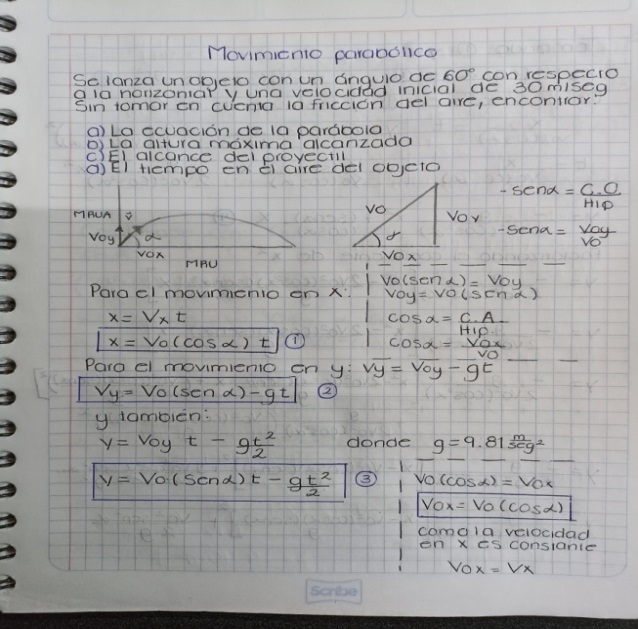 Movimiento parabólico
Se lanza un objeto con un ángulo de 60° con respecto
a la horizontal y una velocidad inicial de 30 m/seg
Sin tomar en cuenta la fricción del aire, encontrar:
a) La ecuación de la parábola
b) La altura máxima alcanzada
c) El alcance del proyectil
d) El tiempo en el aire del objeto
MRUA
Voy
α
Vox
MRU
Vo
Voy
α
Vox
- senα = C.O / Hip
- senα = Voy / Vo
Vo(senα) = Voy
Voy = Vo(senα)
cosα = C.A / Hip
cosα = Vox / Vo
Para el movimiento en x:
x = Vx t
x = Vo(cosα) t ①
Para el movimiento en y: Vy = Voy - gt
Vy = Vo(senα) - gt ②
y también:
y = Voy t - g t²/2 donde g = 9.81 m/seg²
y = Vo(senα)t - g t²/2 ③
Vo(cosα) = Vox
Vox = Vo(cosα)
como la velocidad
en x es constante
Vox = Vx
Scribe